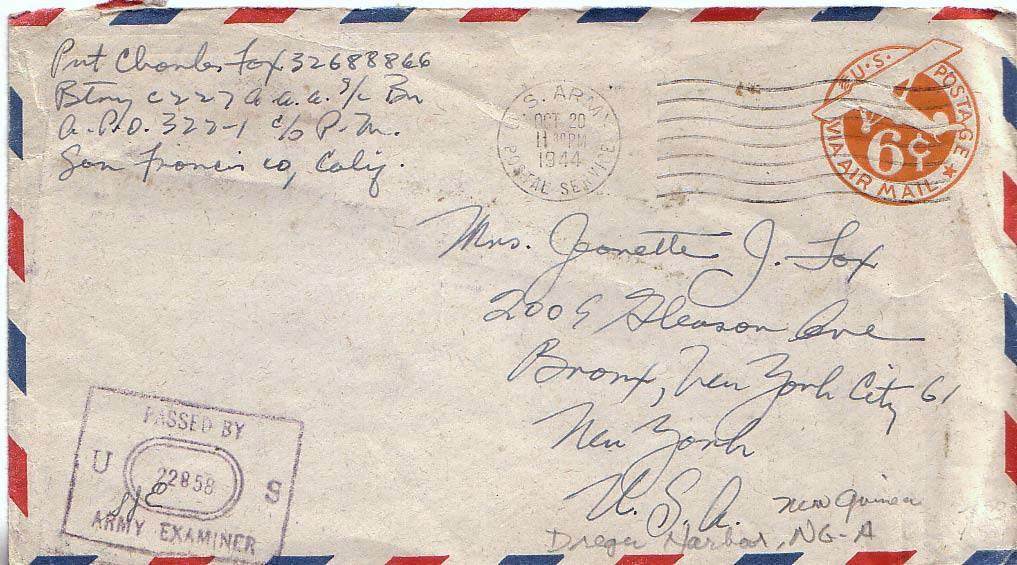 Pvt Charles Fox 32688866
Btry C 227 A.A.A. S/L Bn
A.P.O. 322-1 c/o P.M.
San Francisco, Calif.
U.S. ARMY
OCT 20
11 PM
1944
POSTAL SERVICE
U.S. POSTAGE
6¢
VIA AIR MAIL
Mrs. Jeanette J. Fox
2009 Gleason Ave
Bronx, New York City 61
New York
U.S.A.
New Guinea
Dreger Harbor, NG-A
PASSED BY
U 22858 S
ARMY EXAMINER